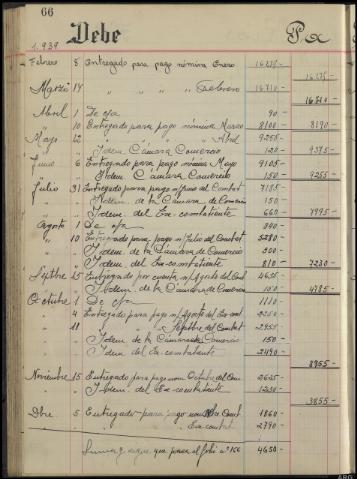 66
Debe
1.939
Febrero 8 Entregado para pago nómina Enero
Marzo 14 " " " " Febrero 16210-
16210-
Abril 1 De c/a 90-
" 10 Entregado para pago nóminas Marzo 8100- 8190-
Mayo 12 " " " " Abril 9255-
" Idem Cámara Comercio 120- 9375-
Junio 6 Entregado para pago nómina Mayo 9105-
" Idem Cámara Comercio 150- 9255-
Julio 31 Entregado para pago del Combat 7185-
" Idem de la Cámara de Comercio 150-
" Idem del Ex-combatiente 660- 7995-
Agosto 1 De c/a
" 10 Entregado para pago n/ Julio del Combat
" Idem de la Cámara de Comercio 300-
" Idem del Ex-combatiente 810- 7230-
Sepbre 15 Entregado por cuenta n/ Agosto del Com 4635-
" Idem de la Cámara de Comercio 150- 4785-
Octubre 1 De c/a 1110-
" 4 Entregado para pago n/ Agosto del Ex-com
" 11 " " " " Sepbre del Combat 2955-
" Idem de la Cámara de Comercio 150-
" Idem del Ex-combatiente 2490-
8955-
Noviembre 15 Entregado para pago nom. Octubre del Com 2625-
" Idem del Ex-combatiente 1230-
3855-
Dbre 5 Entregado para pago nom Nbre Comb 1860-
" " " " Ex-combat 2790-
Suma y sigue que pasa al folio nº 166 4650-